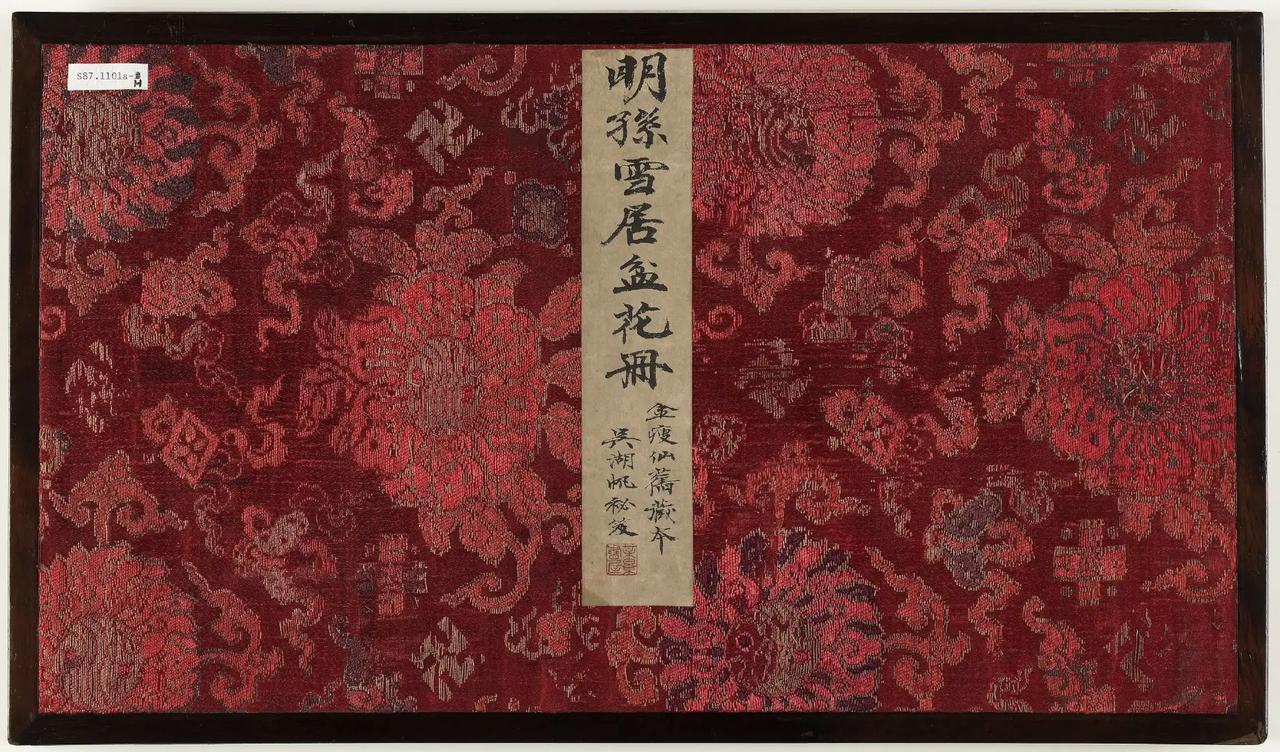 S87.1101a-
明孫雪居盆花冊
金瘦仙舊藏本
吳湖帆祕笈